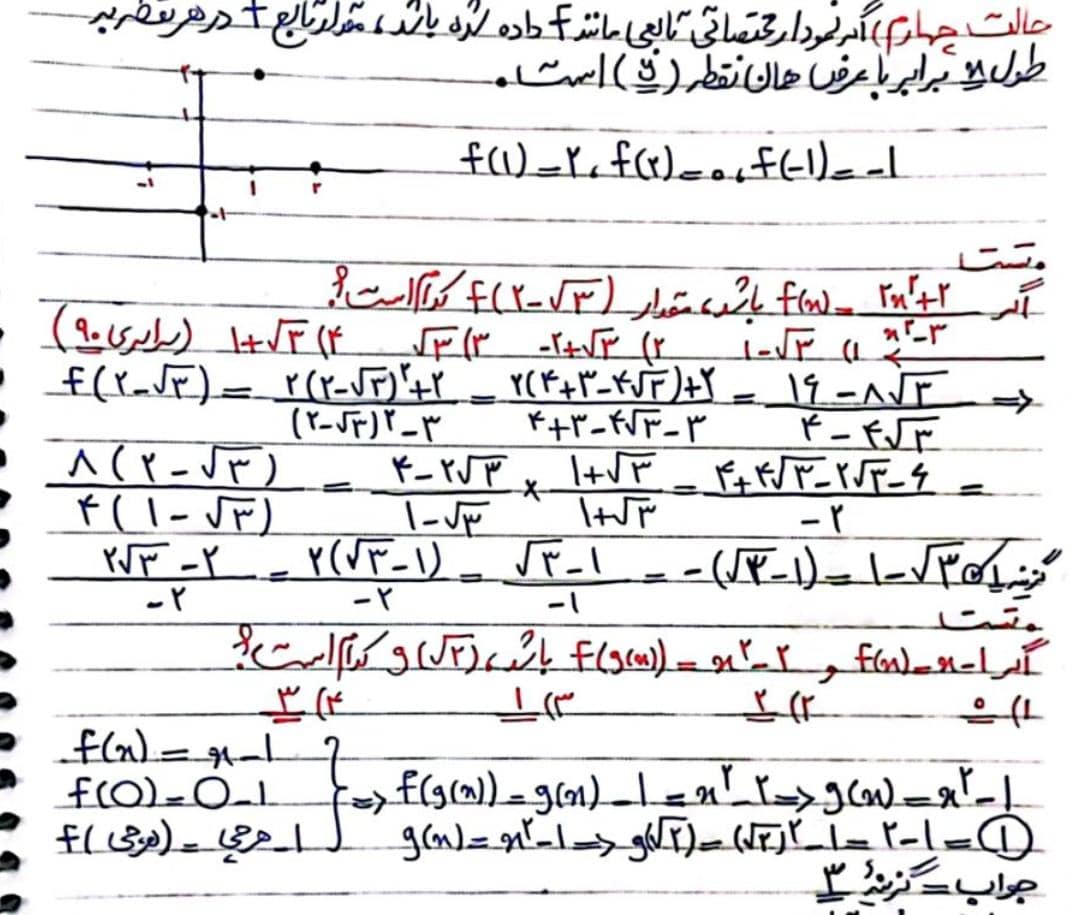 حالت چهارم) اگر نمودار مختصاتی تابعی مانند f داده شده باشد، مقدار تابع f در هر نقطه به
طول x برابر با عرض همان نقطه (y) است.
۲
۱
-۱ ۱ ۲
-۱
f(۱) = ۲، f(۲) = ۰، f(-۱) = -۱
تست
اگر f(x) = (۲x²+۲)/(x²-۳) باشد، مقدار f(۲-√۳) کدام است؟
۱) ۱-√۳ ۲) -۲+√۳ ۳) √۳ ۴) ۱+√۳ (سراسری ۹۰)
f(۲-√۳) = (۲(۲-√۳)²+۲)/((۲-√۳)²-۳) = (۲(۴+۳-۴√۳)+۲)/(۴+۳-۴√۳-۳) = (۱۶-۸√۳)/(۴-۴√۳) ⇒
(۸(۲-√۳))/(۴(۱-√۳)) = (۴-۲√۳)/(۱-√۳) × (۱+√۳)/(۱+√۳) = (۴+۴√۳-۲√۳-۶)/(-۲) =
(۲√۳-۲)/(-۲) = (۲(√۳-۱))/(-۲) = (√۳-۱)/(-۱) = -(√۳-۱) = ۱-√۳ گزینه ۱
تست
اگر f(x) = x-۱ و f(g(x)) = x²-۲ باشد، g(√۲) کدام است؟
۱) ۰ ۲) ۲ ۳) ۱ ۴) ۳
f(x) = x-۱
f(O) = O-۱ } ⇒ f(g(x)) = g(x) - ۱ = x²-۲ ⇒ g(x) = x²-۱
f(هرچی) = هرچی-۱ g(x) = x²-۱ ⇒ g(√۲) = (√۲)²-۱ = ۲-۱ = ۱
جواب = گزینهٔ ۳